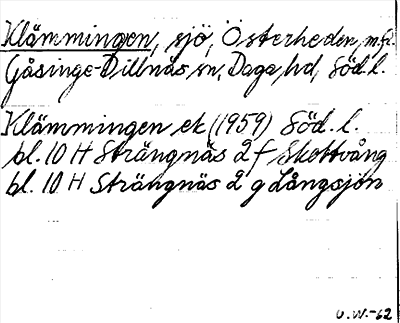 Klämmingen, sjö, Österheden, m.fl.
Gåsinge-Dillnäs sn, Daga hd, Söd. l.
Klämmingen ek (1959) Söd. l.
bl. 10 H Strängnäs 2 f Skottvång
bl. 10 H Strängnäs 2 g Långsjön
U.W.-62